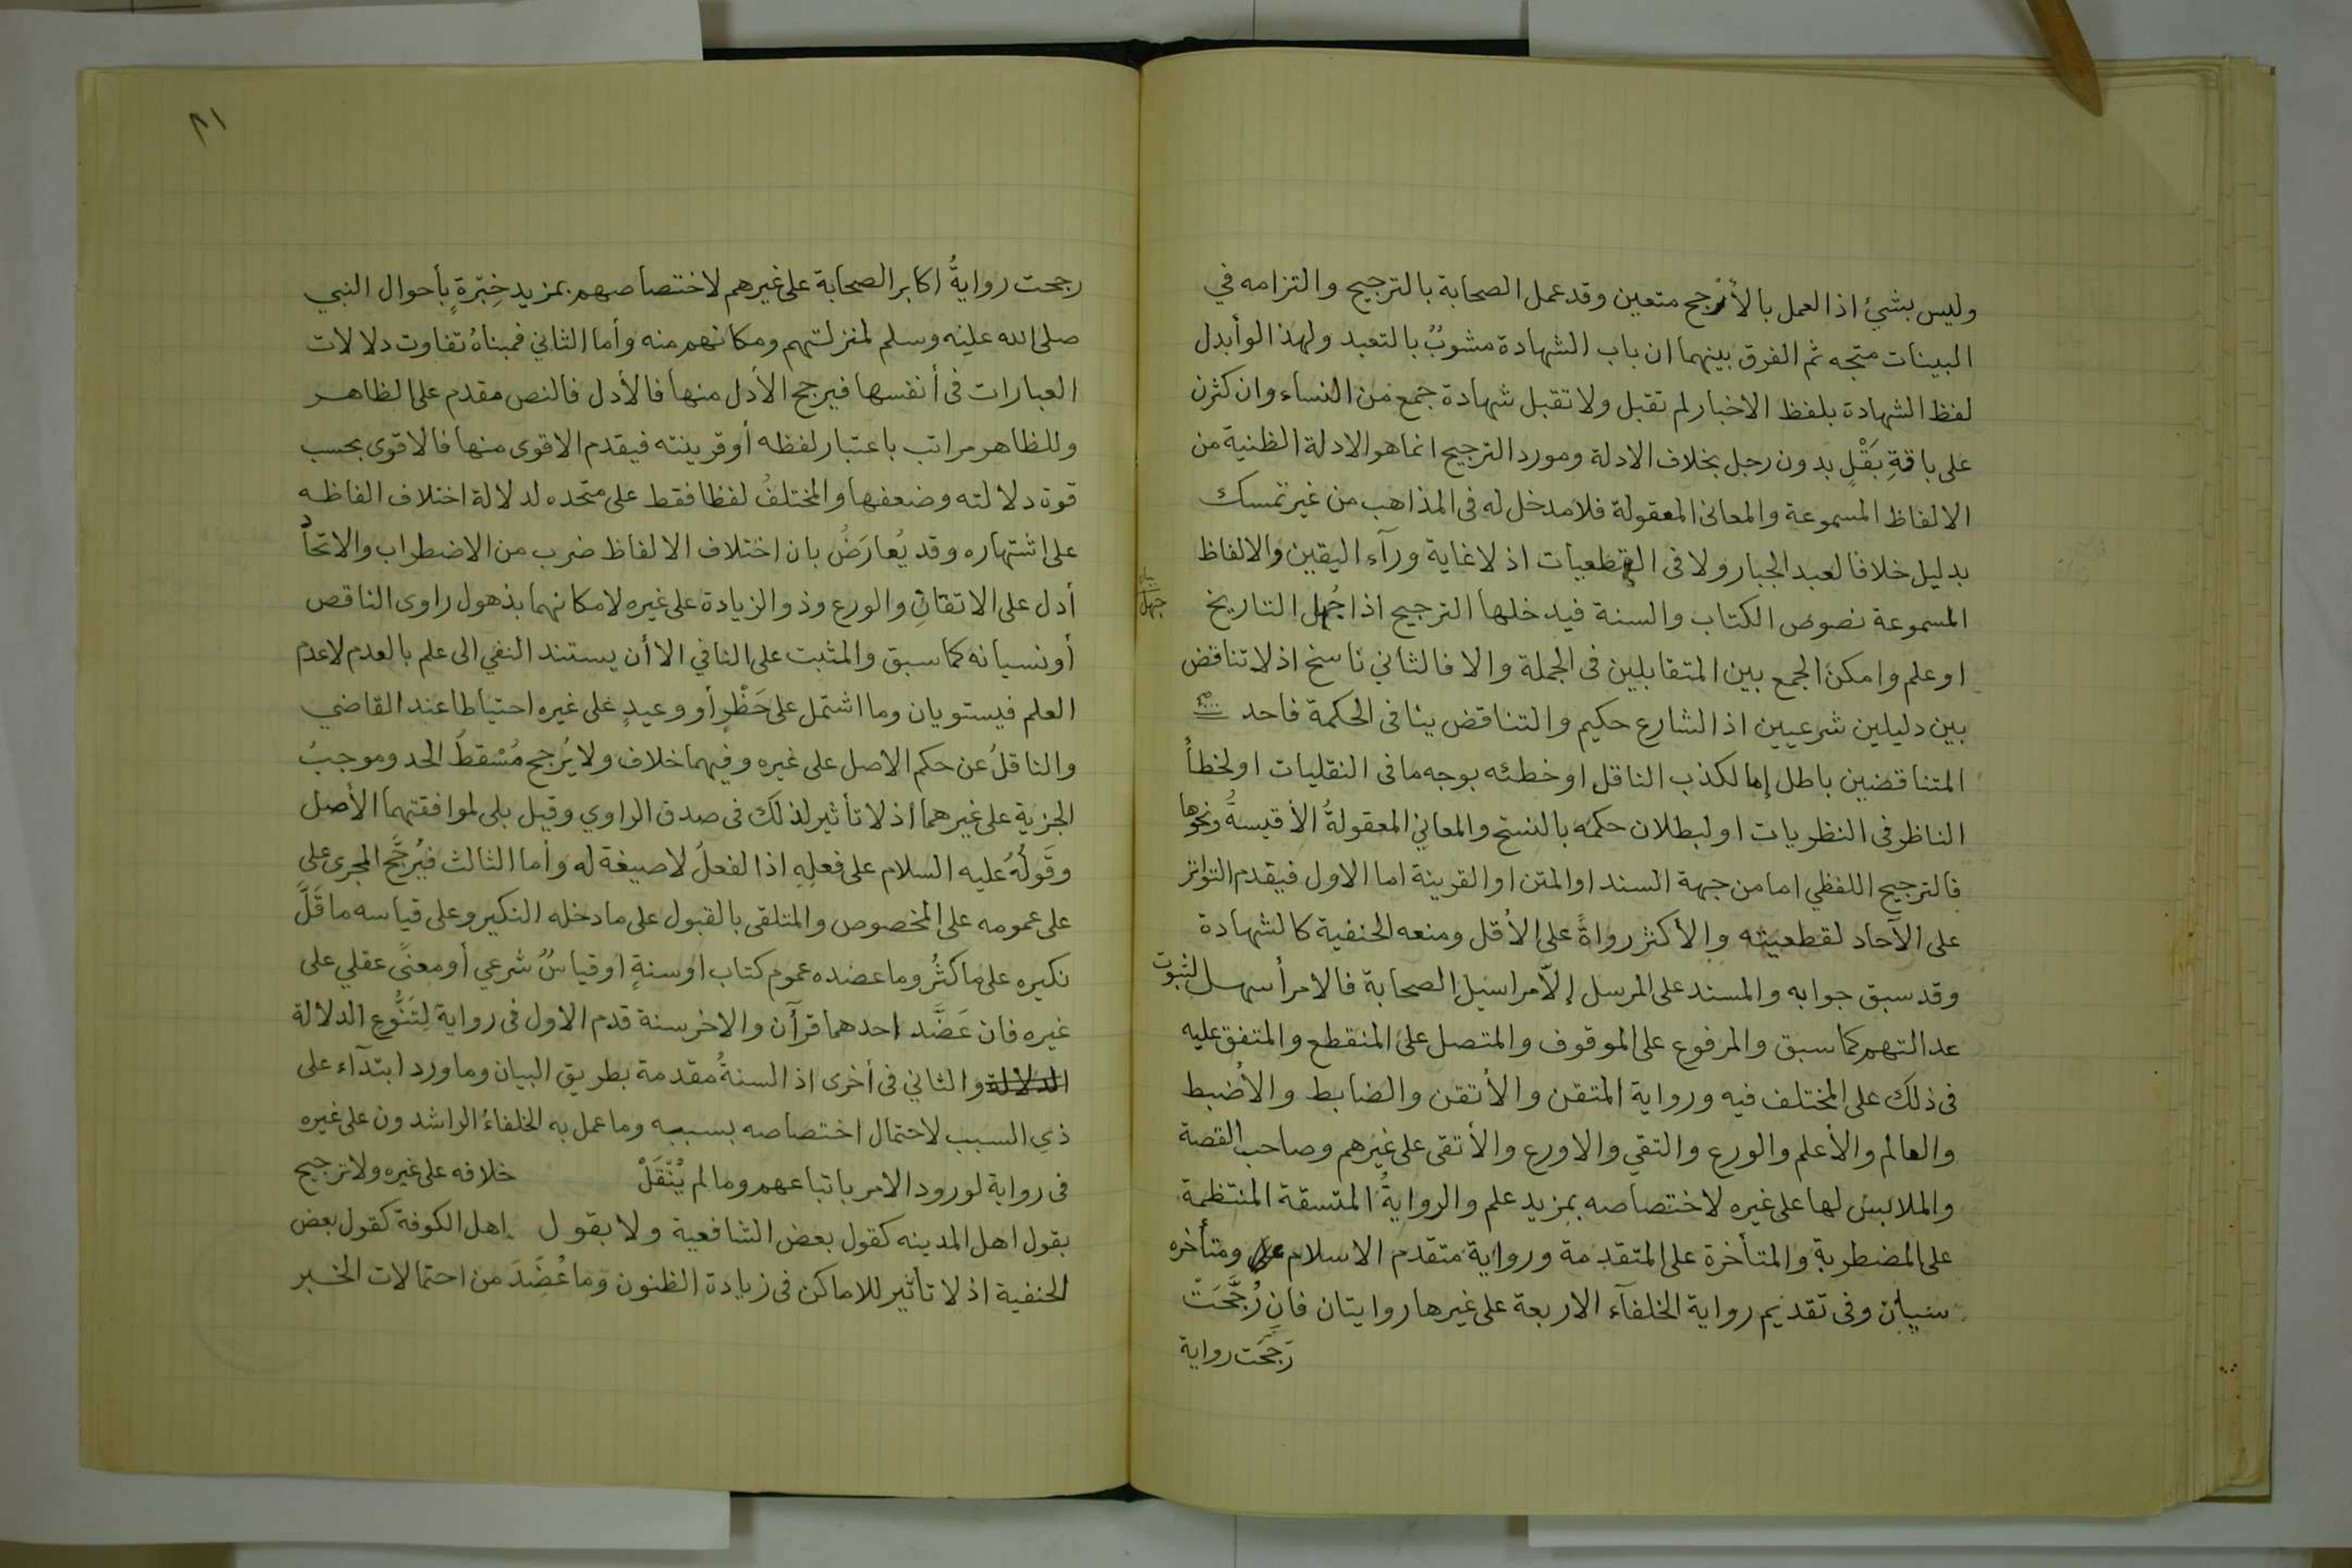 وليس بشيئ اذ العمل بالأرجح متعين وقد عمل الصحابة بالترجيح والتزامه في
البينات متجه ثم الفرق بينهما ان باب الشهادة مشوبٌ بالتعبد ولهذا لو أبدل
لفظ الشهادة بلفظ الاخبار لم تقبل ولا تقبل شهادة جمع من النساء وان كثرن
على باقةِ بَقْلٍ بدون رجل بخلاف الادلة ومورد الترجيح انما هو الادلة الظنية من
الالفاظ المسموعة والمعانى المعقولة فلا مدخل له فى المذاهب من غير تمسك
بدليل خلافا لعبد الجبار ولا فى القطعيات اذ لا غاية ورآء اليقين والالفاظ
المسموعة نصوص الكتاب والسنة فيدخلها الترجيح اذا جُهل التاريخ
جهل
او علم وامكن الجمع بين المتقابلين فى الجملة والا فالثاني ناسخ اذ لا تناقض
بين دليلين شرعيين اذ الشارع حكيم والتناقض ينافى الحكمة فاحد
المتناقضين باطل إما لكذب الناقل او خطئه بوجه ما فى النقليات او لخطأ
الناظر فى النظريات او لبطلان حكمه بالنسخ والمعاني المعقولةُ الأقيسةُ ونحوها
فالترجيح اللفظي اما من جهة السند او المتن او القرينة اما الاول فيقدم التواتر
على الآحاد لقطعيته والأكثر رواةً على الأقل ومنعه الحنفية كالشهادة
وقد سبق جوابه والمسند على المرسل إلّا مراسيل الصحابة فالامر أسهل لثبوت
عدالتهم كما سبق والمرفوع على الموقوف والمتصل على المنقطع والمتفق عليه
فى ذلك على المختلف فيه ورواية المتقن والأتقن والضابط والأضبط
والعالم والأعلم والورع والتقي والاورع والأتقى على غيرهم وصاحب القصة
والملابس لها على غيره لاختصاصه بمزيد علم والروايةُ المتسقة المنتظمة
على المضطربة والمتأخرة على المتقدمة ورواية متقدم الاسلام ومتأخره
سيان وفى تقديم رواية الخلفآء الاربعة على غيرها روايتان فان رُجَّحَتْ
رَجَّحَت رواية
٨١
رجحت روايةُ اكابر الصحابة على غيرهم لاختصاصهم بمزيد خِبّرةٍ بأحوال النبي
صلى الله عليه وسلم لمنزلتهم ومكانهم منه وأما الثاني فمبناهُ تفاوت دلالات
العبارات فى أنفسها فيرجح الأدل منها فالأدل فالنص مقدم على الظاهر
وللظاهر مراتب باعتبار لفظه أو قرينته فيقدم الاقوى منها فالاقوى بحسب
قوة دلالته وضعفها والمختلفُ لفظا فقط على متحده لدلالة اختلاف الفاظه
على اشتهاره وقد يُعارَضُ بان اختلاف الالفاظ ضرب من الاضطراب والاتحاد
أدل على الاتقانِ والورع وذو الزيادة على غيره لامكانهما بذهول راوى الناقص
أو نسيانه كما سبق والمثبت على النافي الا أن يستند النفي الى علم بالعدم لا عدم
العلم فيستويان وما اشتمل على حَظْرٍ أو وعيدٍ على غيره احتياطا عند القاضي
والناقلُ عن حكم الاصل على غيره وفيهما خلاف ولا يُرجح مُسْقطُ الحد وموجبُ
الجزية على غيرهما اذ لا تأثير لذلك فى صدق الراوي وقيل بلى لموافقتهما الأصل
وقَولُهُ عليه السلام على فعلِهِ اذ الفعلُ لا صيغة له وأما الثالث فيُرجَّح المجرى على
على عمومه على المخصوص والمتلقى بالقبول على ما دخله النكير وعلى قياسه ما قَلَّ
نكيره على ما كثُر وما عضده عموم كتاب او سنةٍ او قياسٌ شرعي أو معنًى عقلي على
غيره فان عَضَّد احدهما قرآن والاخر سنة قدم الاول فى رواية لِتَنَوُّعِ الدلالة
الدلالة والثاني فى أخرى اذ السنةُ مقدمة بطريق البيان وما ورد ابتدآء على
ذي السبب لاحتمال اختصاصه بسببه وما عمل به الخلفاءُ الراشدون على غيره
فى رواية لورود الامر باتباعهم وما لم يُنْقَلْ خلافه على غيره ولا ترجيح
بقول اهل المدينه كقول بعض الشافعية ولا بقول اهل الكوفة كقول بعض
الحنفية اذ لا تأثير للاماكن فى زيادة الظنون وما عُضِّدَ من احتمالات الخبر